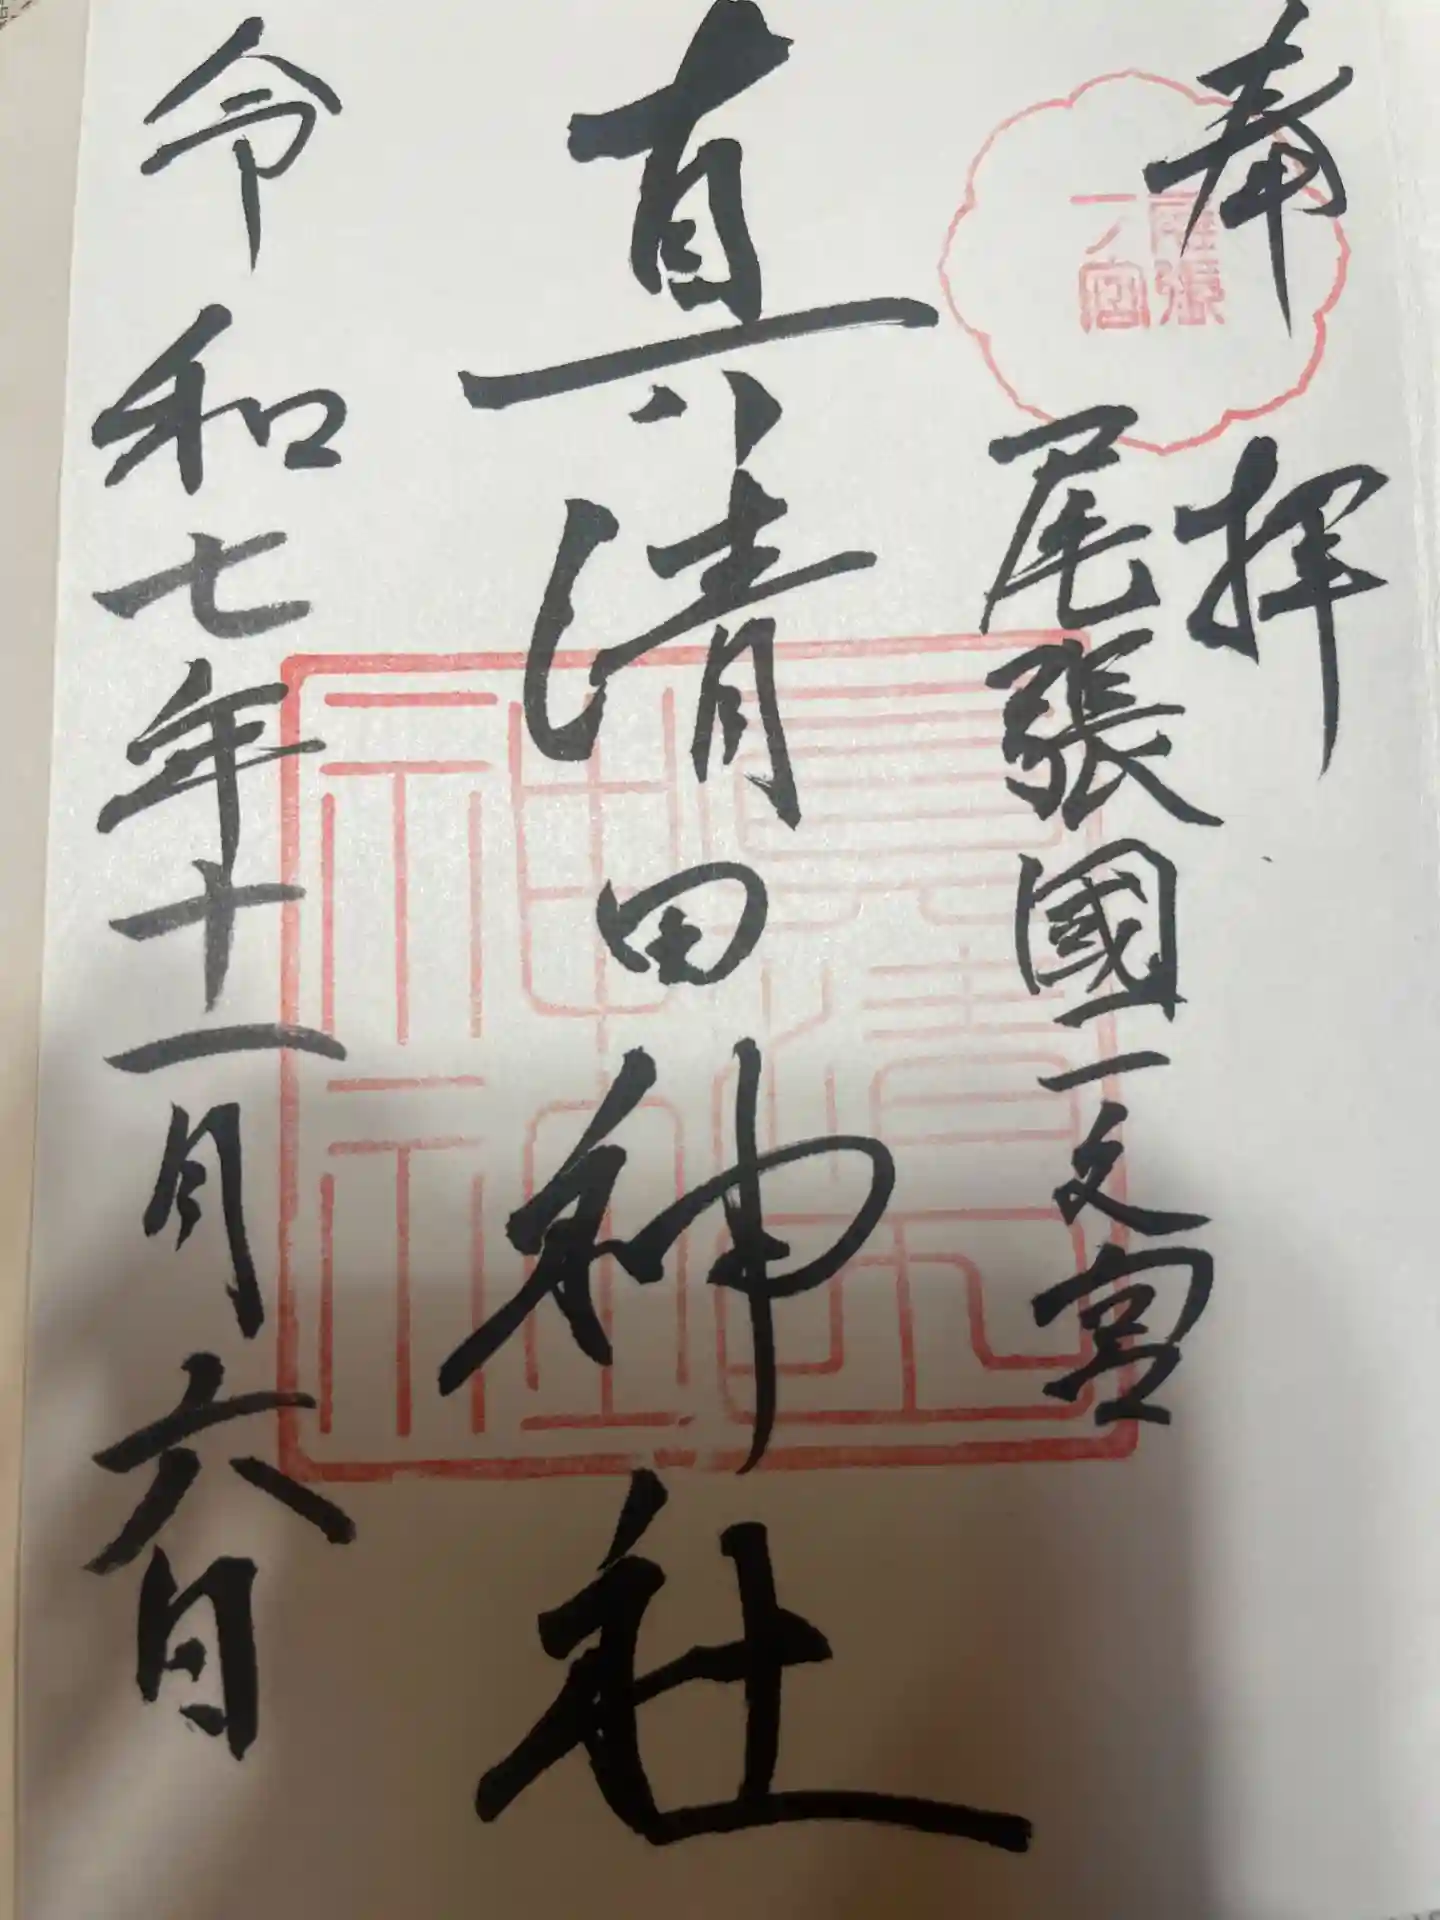 奉拝
尾張
一ノ宮
尾張國一之宮
真清田神社
令和七年十一月六日